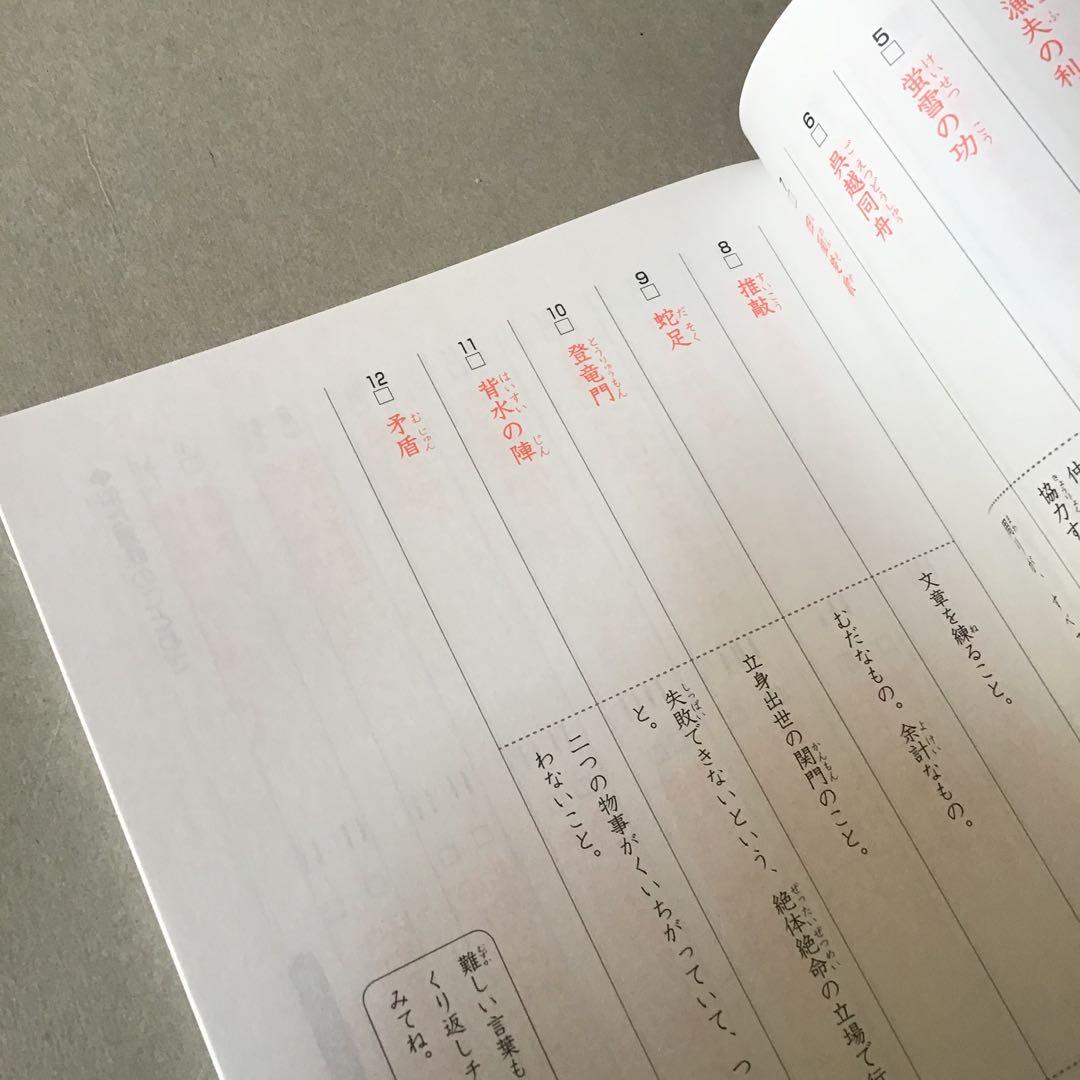 漁夫の利
5 □ 蛍雪の功
6 □ 呉越同舟
協力す
8 □ 推敲
文章を練ること。
9 □ 蛇足
むだなもの。余計なもの。
10 □ 登竜門
立身出世の関門のこと。
11 □ 背水の陣
失敗できないという、絶体絶命の立場で行
と。
12 □ 矛盾
二つの物事がくいちがっていて、つ
わないこと。
難しい言葉も
くり返しチ
みてね。